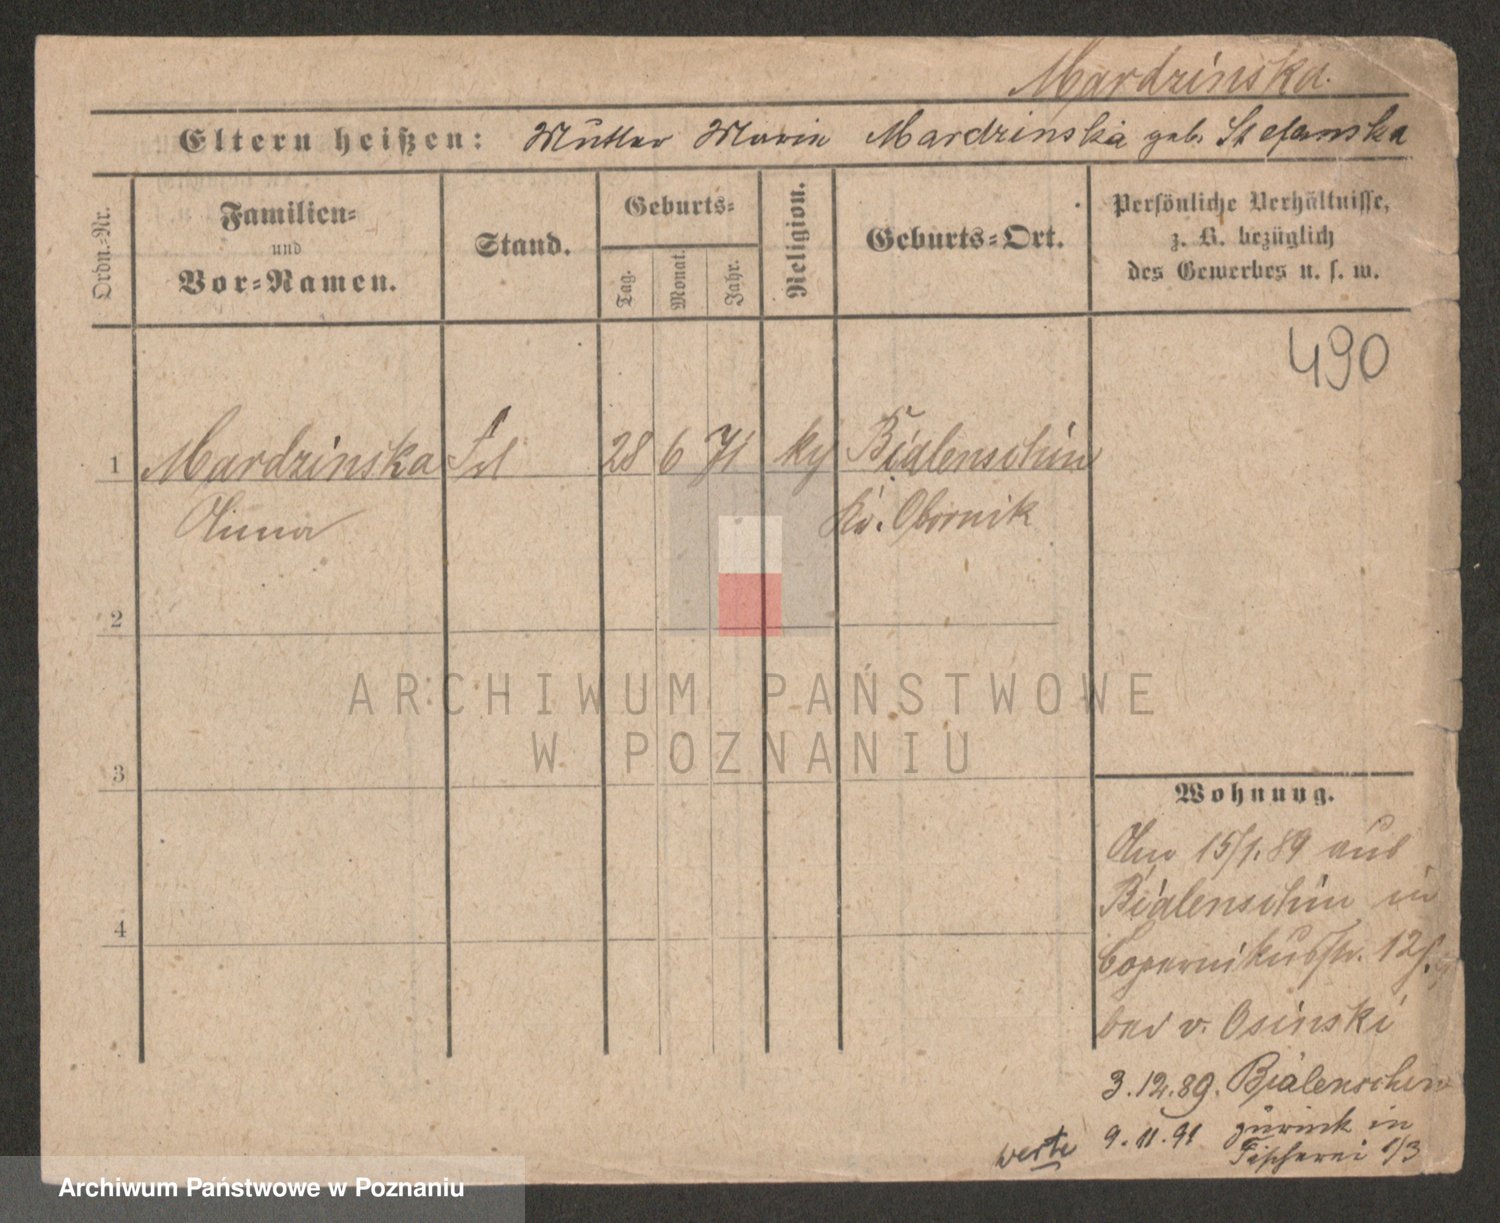 Mardzinska.
Eltern heißen: Mutter Marie Mardzinska geb. Stefanska
Ordn.-Nr.
Familien-
und
Vor-Namen.
Stand.
Geburts-
Tag.
Monat.
Jahr.
Religion.
Geburts-Ort.
Persönliche Verhältnisse,
z. B. bezüglich
des Gewerbes u. s. w.
490
1 Mardzinska Frl 28 6 71 Bialenschin
Anna Kr. Obornik
2
ARCHIWUM PAŃSTWOWE
W POZNANIU
3
4
Wohnung.
15/1.89 aus
Bialenschin in
Copernikusstr. 12
bei v. Osinski
3.12.89. Bialenschin
9.11.91 zurück in
Fischerei 1/3
Archiwum Państwowe w Poznaniu